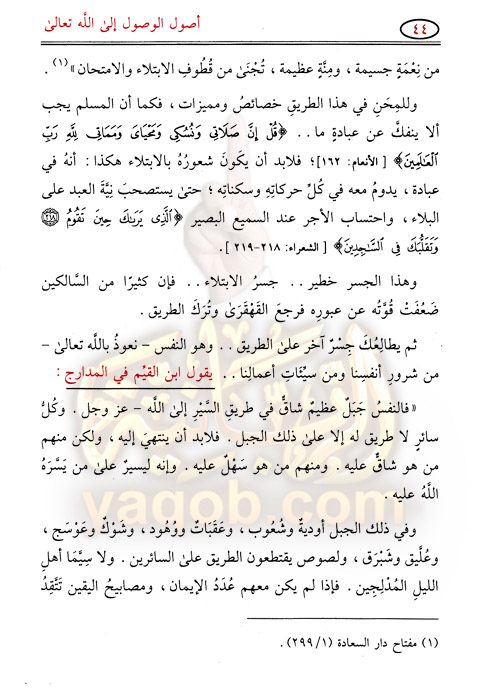 ٤٤
أصول الوصول إلى اللَّه تعالى
من نِعْمَةٍ جسيمة ، ومِنَّةٍ عظيمة ، تُجْنَىٰ من قُطُوفِ الابتلاء والامتحان »(١) .
وللمِحَنِ في هذا الطريقِ خصائصُ ومميزات ، فكما أن المسلم يجب
ألا ينفكَّ عن عبادةٍ ما . . ﴿قُلْ إِنَّ صَلَاتِي وَنُسُكِي وَمَحْيَايَ وَمَمَاتِي لِلَّهِ رَبِّ
الْعَالَمِينَ﴾ [الأنعام: ١٦٢]؛ فلابد أن يكونَ شعورُهُ بالابتلاء هكذا : أنه في
عبادة ، يدومُ معه في كُلِّ حركاتِهِ وسكناتِه ؛ حتىٰ يستصحبَ نِيَّةَ العبد على
البلاء ، واحتساب الأجر عند السميع البصير ﴿الَّذِي يَرَاكَ حِينَ تَقُومُ ۝٢١٨
وَتَقَلُّبَكَ فِي السَّاجِدِينَ﴾ [الشعراء: ٢١٨-٢١٩] .
وهذا الجسر خطير . . جسرُ الابتلاء . . فإن كثيرًا من السالكين
ضَعُفَتْ قُوَّتُه عن عبورِه فرجعَ القَهْقَرَىٰ وتُرَكَ الطريق .
ثم يطالِعُكَ جِسْرٌ آخر على الطريق . . وهو النفس – نعوذُ باللَّه تعالىٰ –
من شرورِ أنفسِنا ومن سيِّئاتِ أعمالِنا . . يقول ابن القيِّم في المدارج :
« فالنفسُ جَبَلٌ عظيمٌ شاقٌّ في طريقِ السَّيْرِ إلىٰ اللَّه – عز وجل . وكُلُّ
سائرٍ لا طريق له إلا على ذلك الجبل . فلابد أن ينتهيَ إليه ، ولكن منهم
من هو شاقٌّ عليه . ومنهم من هو سَهْلٌ عليه . وإنه ليسيرٌ علىٰ من يَسَّرَهُ
اللَّهُ عليه .
وفي ذلك الجبل أوديةٌ وشُعُوب ، وعَقَبَاتٌ ووُهُود ، وشَوْكٌ وعَوْسَج ،
وعُلَّيق وشَبْرَق ، ولصوص يقتطعون الطريق علىٰ السائرين . ولا سِيَّمَا أهلِ
الليلِ المُدْلِجين . فإذا لم يكن معهم عُدَدُ الإيمان ، ومصابيحُ اليقين تَتَّقِدُ
(١) مفتاح دار السعادة (١/ ٢٩٩) .
yaqob.com